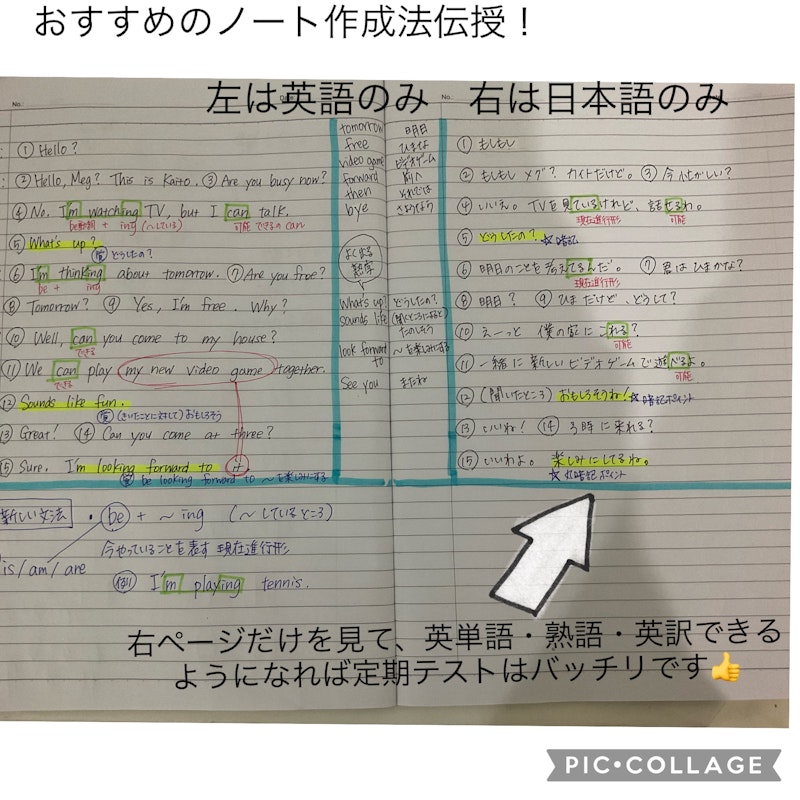 おすすめのノート作成法伝授！
左は英語のみ
右は日本語のみ
No.
① Hello?
② Hello, Meg? This is Kaito. ③ Are you busy now?
④ No. I'm watching TV, but I can talk.
be動詞 + ing (〜している) 可能 できるのcan
⑤ What's up?
どうしたの？
⑥ I'm thinking about tomorrow. ⑦ Are you free?
be + ing
⑧ Tomorrow? ⑨ Yes, I'm free. Why?
⑩ Well, can you come to my house?
できる
⑪ We can play my new video game together.
できる
⑫ Sounds like fun.
(きいたことに対して) おもしろそう
⑬ Great! ⑭ Can you come at three?
⑮ Sure. I'm looking forward to it.
be looking forward to 〜を楽しみにする
tomorrow 明日
free ひまな
video game ビデオゲーム
forward 前へ
then それでは
bye さようなら
よく出る
熟字
What's up? どうしたの？
sounds like (聞くところによると)
たのしそう
look forward to 〜を楽しみにする
See you またね
No.
① もしもし
② もしもし メグ？ カイトだけど。 ③ 今忙しい？
④ いいえ。TVを見ているけれど、話せるわ。
現在進行形 可能
⑤ どうしたの？ ☆暗記
⑥ 明日のことを考えてるんだ。 ⑦ 君はひまかな？
現在進行形
⑧ 明日？ ⑨ ひまだけど、どうして？
⑩ えーっと 僕の家に これる？
可能
⑪ 一緒に新しいビデオゲームで遊べるよ。
可能
⑫ (聞いたところ) おもしろそうね！ ☆暗記ポイント
⑬ いいね！ ⑭ 3時に来れる？
⑮ いいわよ。 楽しみにしてるね。
☆暗記ポイント
新しい文法 ・be + 〜ing (〜しているところ)
is/am/are
今やっていることを表す 現在進行形
(例) I'm playing tennis.
右ページだけを見て、英単語・熟語・英訳できる
ようになれば定期テストはバッチリです👍
PIC•COLLAGE